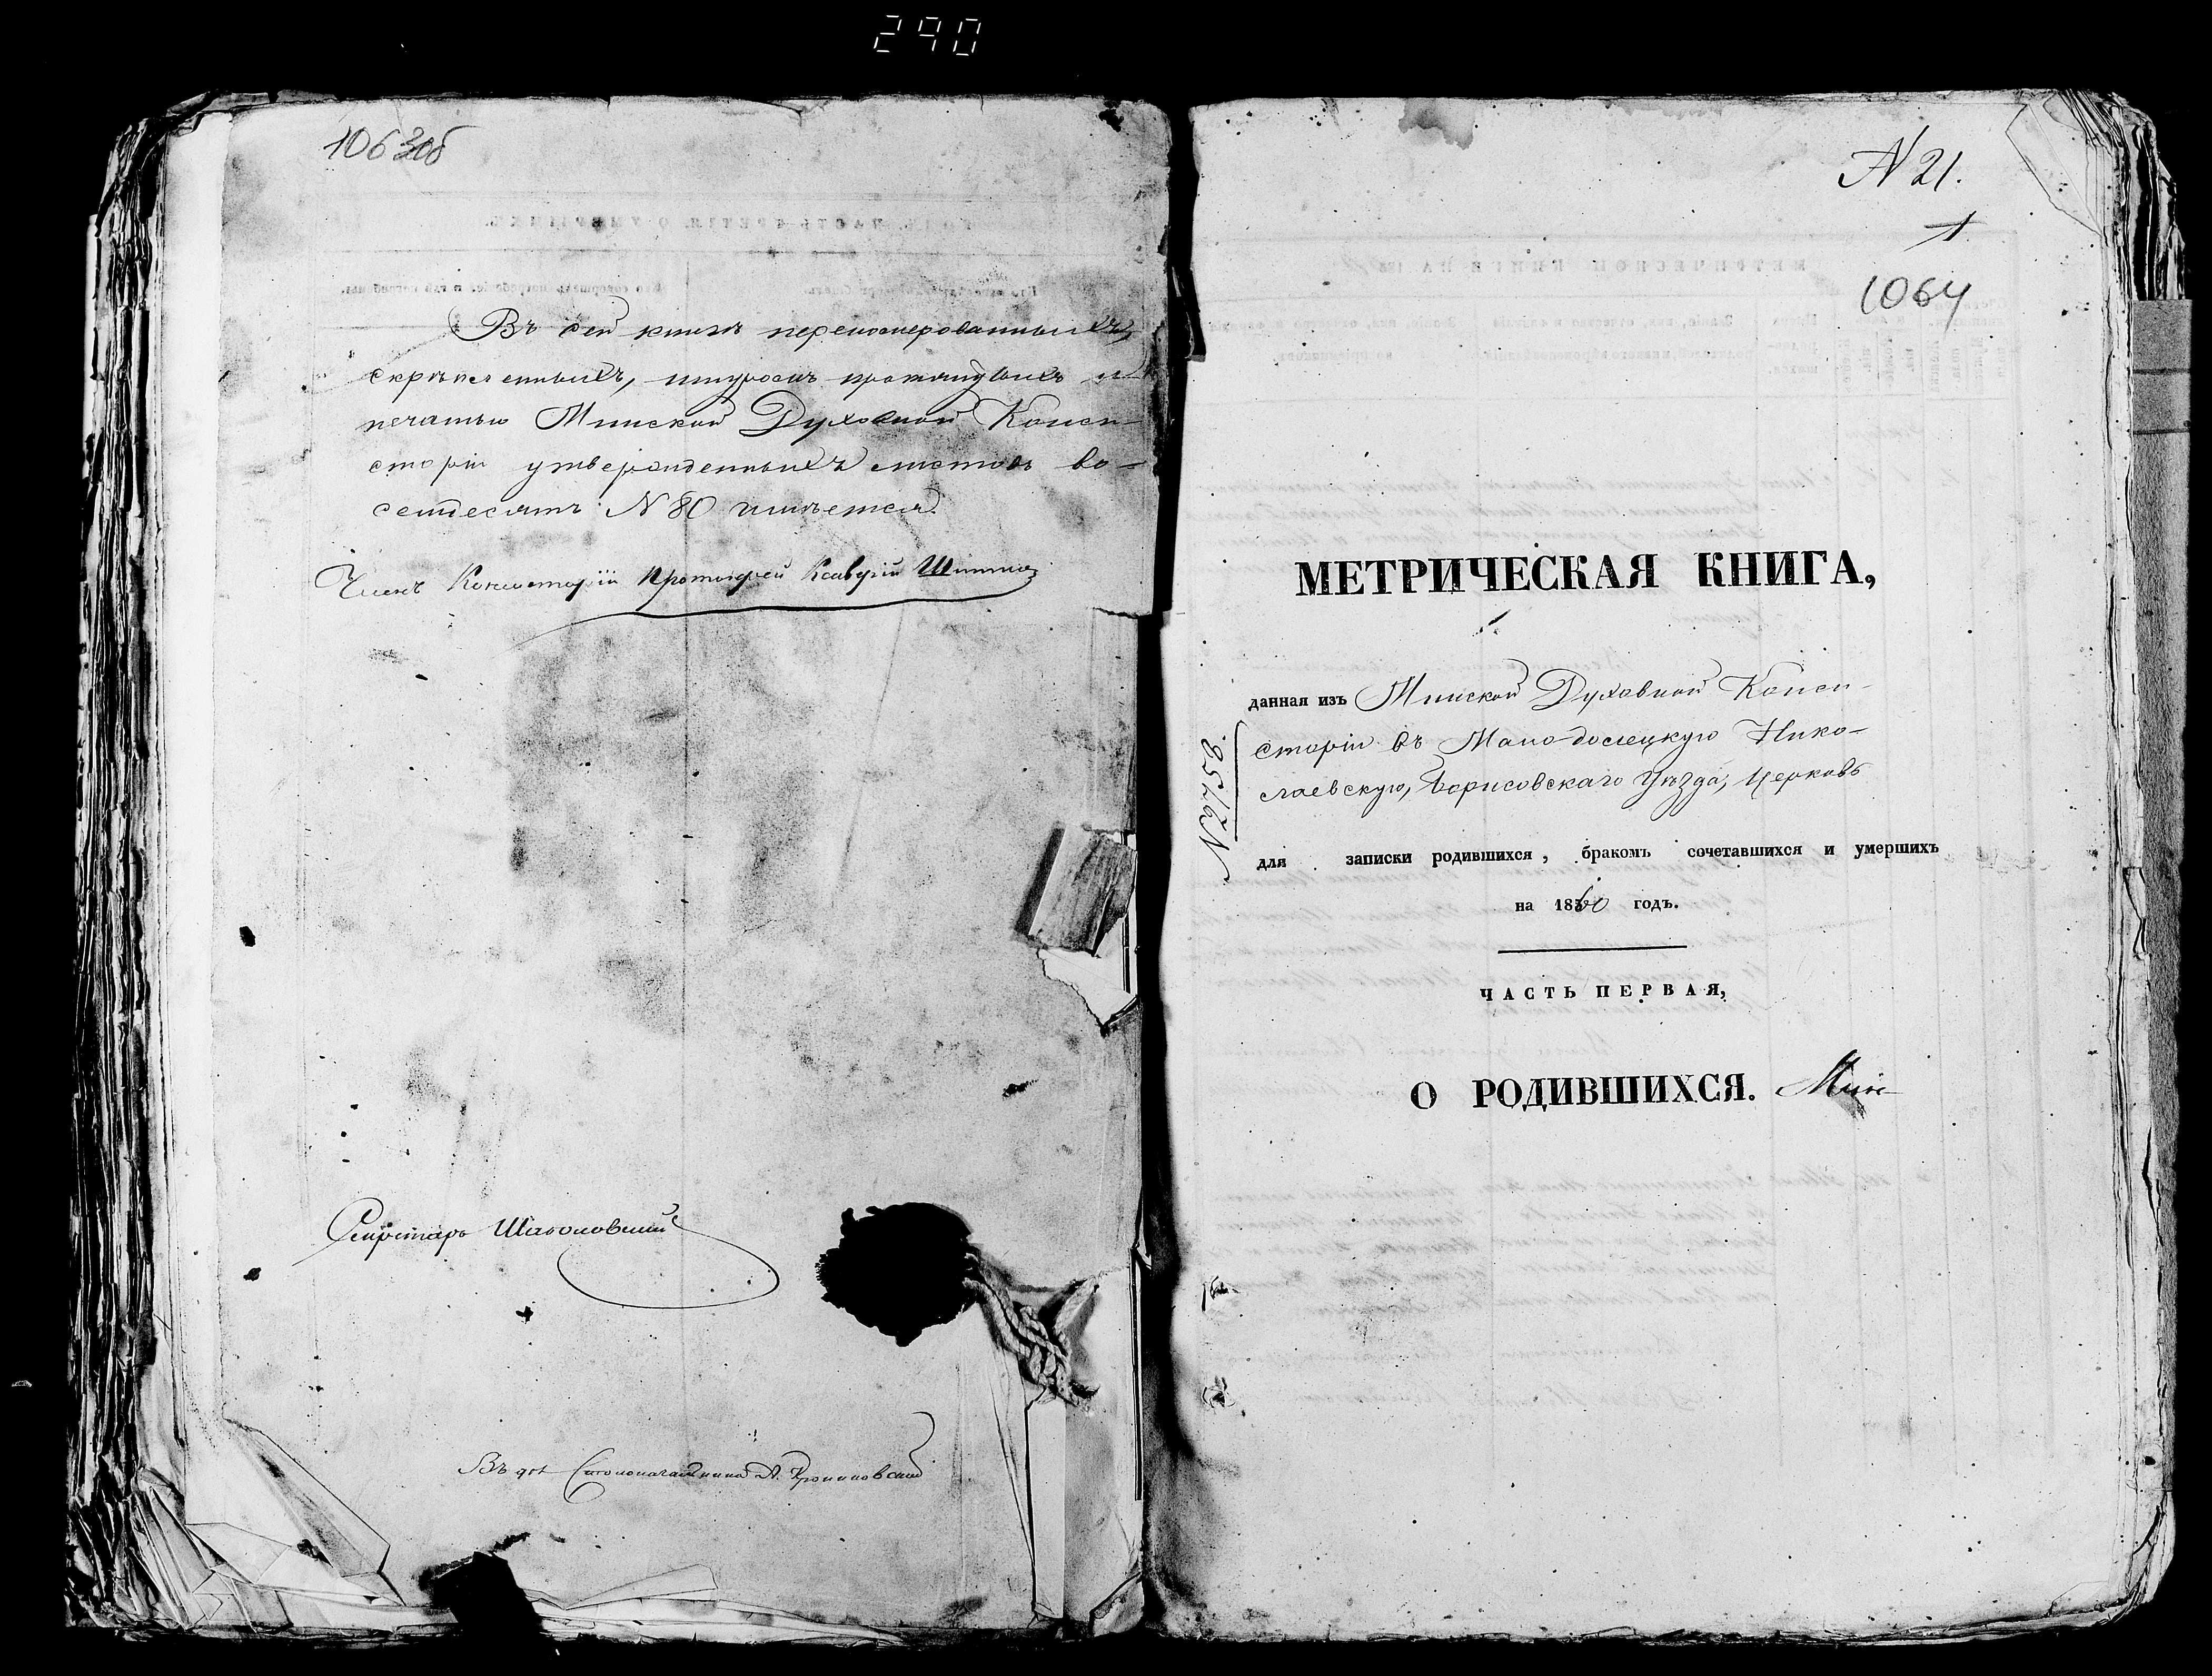 290
1063об
Въ сей книгѣ перенумерованныхъ,
скрѣпленныхъ, шнуромъ протянутыхъ и
печатью Минской Духовной Конси-
сторіи утвержденныхъ листовъ во-
семдесятъ N 80 имѣется.
Членъ Консисторіи Протоіерей
Секретарь
Въ дол. Столоначальника А.
N 21.
1
1064
МЕТРИЧЕСКАЯ КНИГА,
данная изъ Минской Духовной Конси-
сторіи въ Мало-Долецкую Нико-
лаевскую, Борисовскаго Уѣзда, Церковь
для записки родившихся, бракомъ сочетавшихся и умершихъ
на 1860 годъ.
ЧАСТЬ ПЕРВАЯ,
О РОДИВШИХСЯ. Мин-